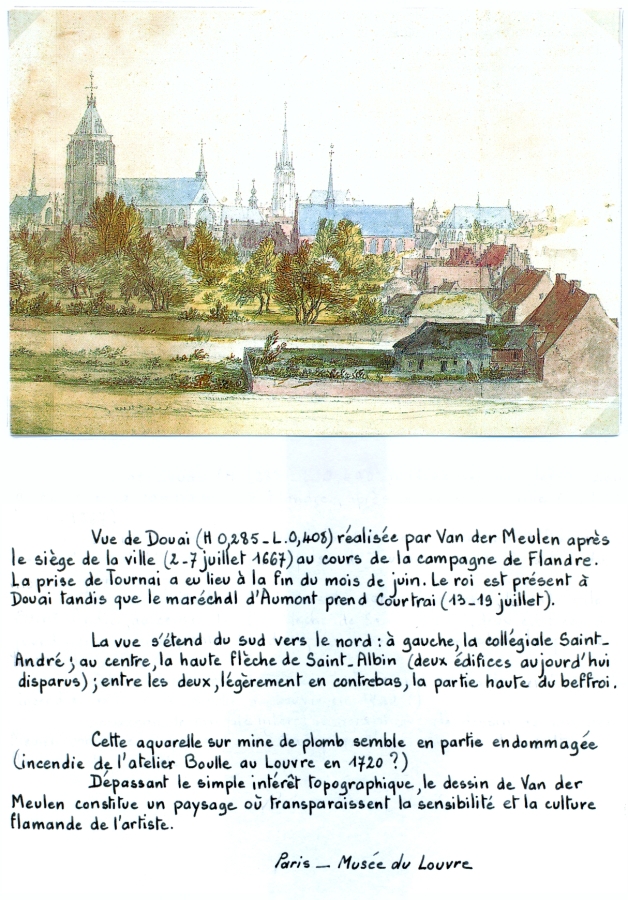 Vue de Douai (H 0,285 _ L. 0,408) réalisée par Van der Meulen après
le siège de la ville (2_7 juillet 1667) au cours de la campagne de Flandre.
La prise de Tournai a eu lieu à la fin du mois de juin. Le roi est présent à
Douai tandis que le maréchal d'Aumont prend Courtrai (13_19 juillet).
La vue s'étend du sud vers le nord : à gauche, la collégiale Saint_
André ; au centre, la haute flèche de Saint_Albin (deux édifices aujourd'hui
disparus) ; entre les deux, légèrement en contrebas, la partie haute du beffroi.
Cette aquarelle sur mine de plomb semble en partie endommagée
(incendie de l'atelier Boulle au Louvre en 1720 ?)
Dépassant le simple intérêt topographique, le dessin de Van der
Meulen constitue un paysage où transparaissent la sensibilité et la culture
flamande de l'artiste.
Paris _ Musée du Louvre